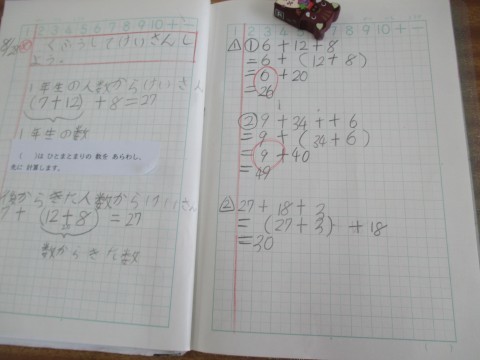 1 2 3 4 5 6 7 8 9 10 + −
くふうしてけいさんし
よう。
1年生の人数からけいさん
(7+12)+8=27
1年生の数
( )は ひとまとまりの 数を あらわし、
先に 計算します。
からきた人数からけいさん
7+(12+8)=27
数からきた数
1 2 3 4 5 6 7 8 9 10 + −
△1 ①6+12+8
=6+(12+8)
=6+20
=26
②9+34++6
=9+(34+6)
=9+40
=49
△2 27+18+3
=(27+3)+18
=30